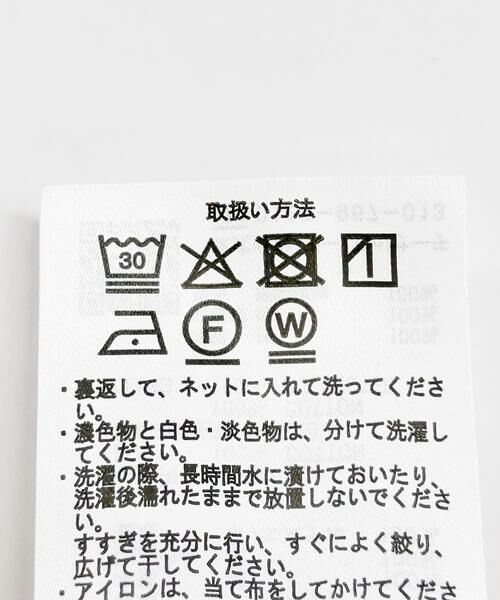 取扱い方法
30
F
W
・裏返して、ネットに入れて洗ってくださ
い。
・濃色物と白色・淡色物は、分けて洗濯し
てください。
・洗濯の際、長時間水に漬けておいたり、
洗濯後濡れたままで放置しないでくださ
い。
すすぎを充分に行い、すぐによく絞り、
広げて干してください。
・アイロンは、当て布をしてかけてくださ